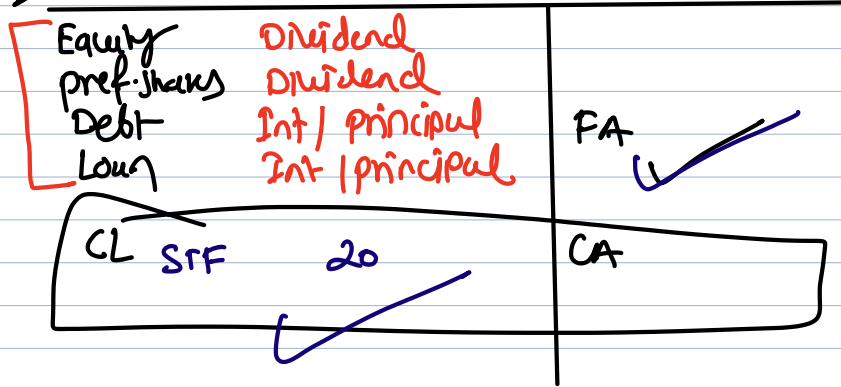 Equity Dividend
pref. shares Dividend
Debt Int / principal FA
Loan Int / principal
CL STF 20 CA